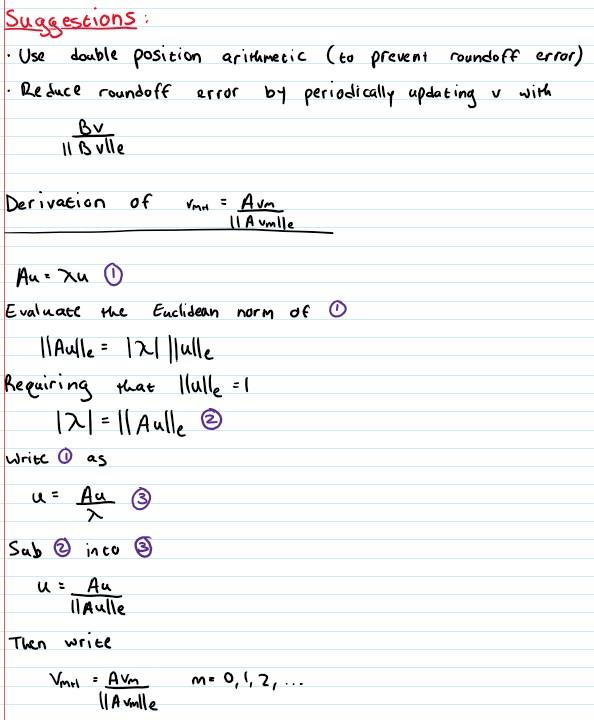 Suggestions:
· Use double position arithmetic (to prevent roundoff error)
· Reduce roundoff error by periodically updating v with
Bv / ||Bv||e
Derivation of vm+1 = Avm / ||Avm||e
Au = λu ①
Evaluate the Euclidean norm of ①
||Au||e = |λ| ||u||e
Requiring that ||u||e = 1
|λ| = ||Au||e ②
Write ① as
u = Au / λ ③
Sub ② into ③
u = Au / ||Au||e
Then write
Vm+1 = AVm / ||AVm||e m = 0, 1, 2, ...